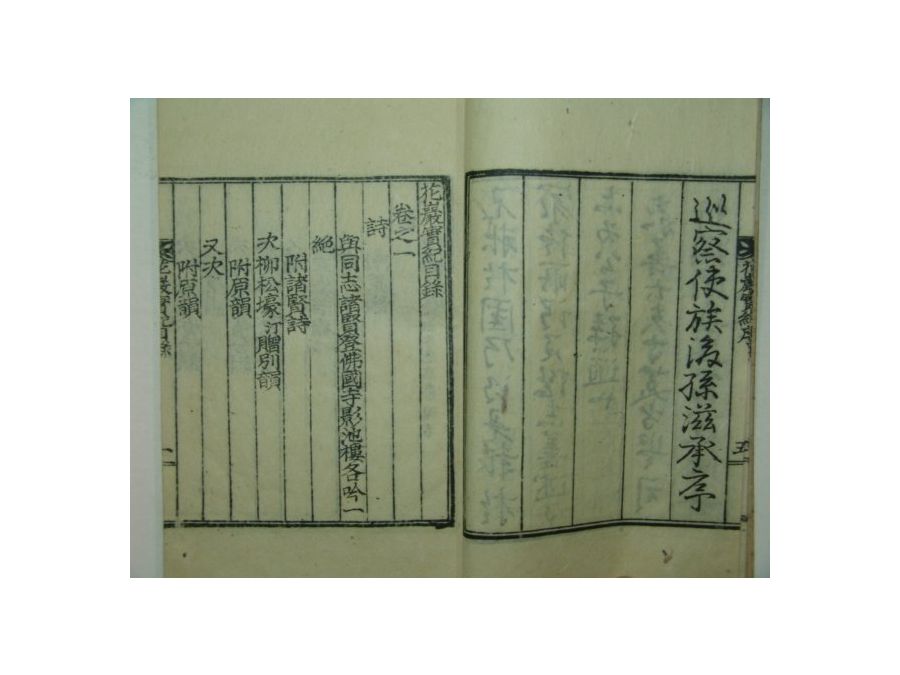 巡察使族後孫滋承序
花巖實紀序
五
花巖實紀目錄
卷之一
詩
與同志諸賢登佛國寺影池樓各吟一
絕
附諸賢詩
次柳松壕汀贈別韻
附原韻
又次
附原韻
花巖實紀目錄
一